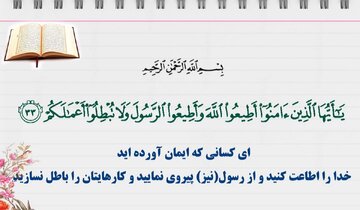 بِسْمِ اللَّهِ الرَّحْمَٰنِ الرَّحِيمِ
يَٰٓأَيُّهَا ٱلَّذِينَ ءَامَنُوٓا۟ أَطِيعُوا۟ ٱللَّهَ وَأَطِيعُوا۟ ٱلرَّسُولَ وَلَا تُبْطِلُوٓا۟ أَعْمَٰلَكُمْ ﴿٣٣﴾
ای کسانی که ایمان آورده اید
خدا را اطاعت کنید و از رسول(نیز) پیروی نمایید و کارهایتان را باطل نسازید